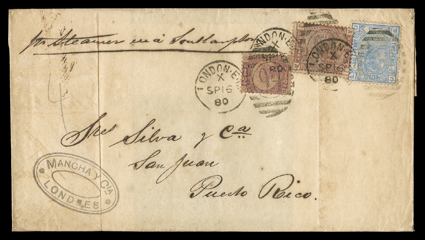 pr Steamer via Southampton
LONDON-E.C
X
SP16
80
LONDON-E.C
X
SP16
80
Sres Silva y Ca
San Juan
Puerto Rico.
MANCHA Y CIA
LONDRES